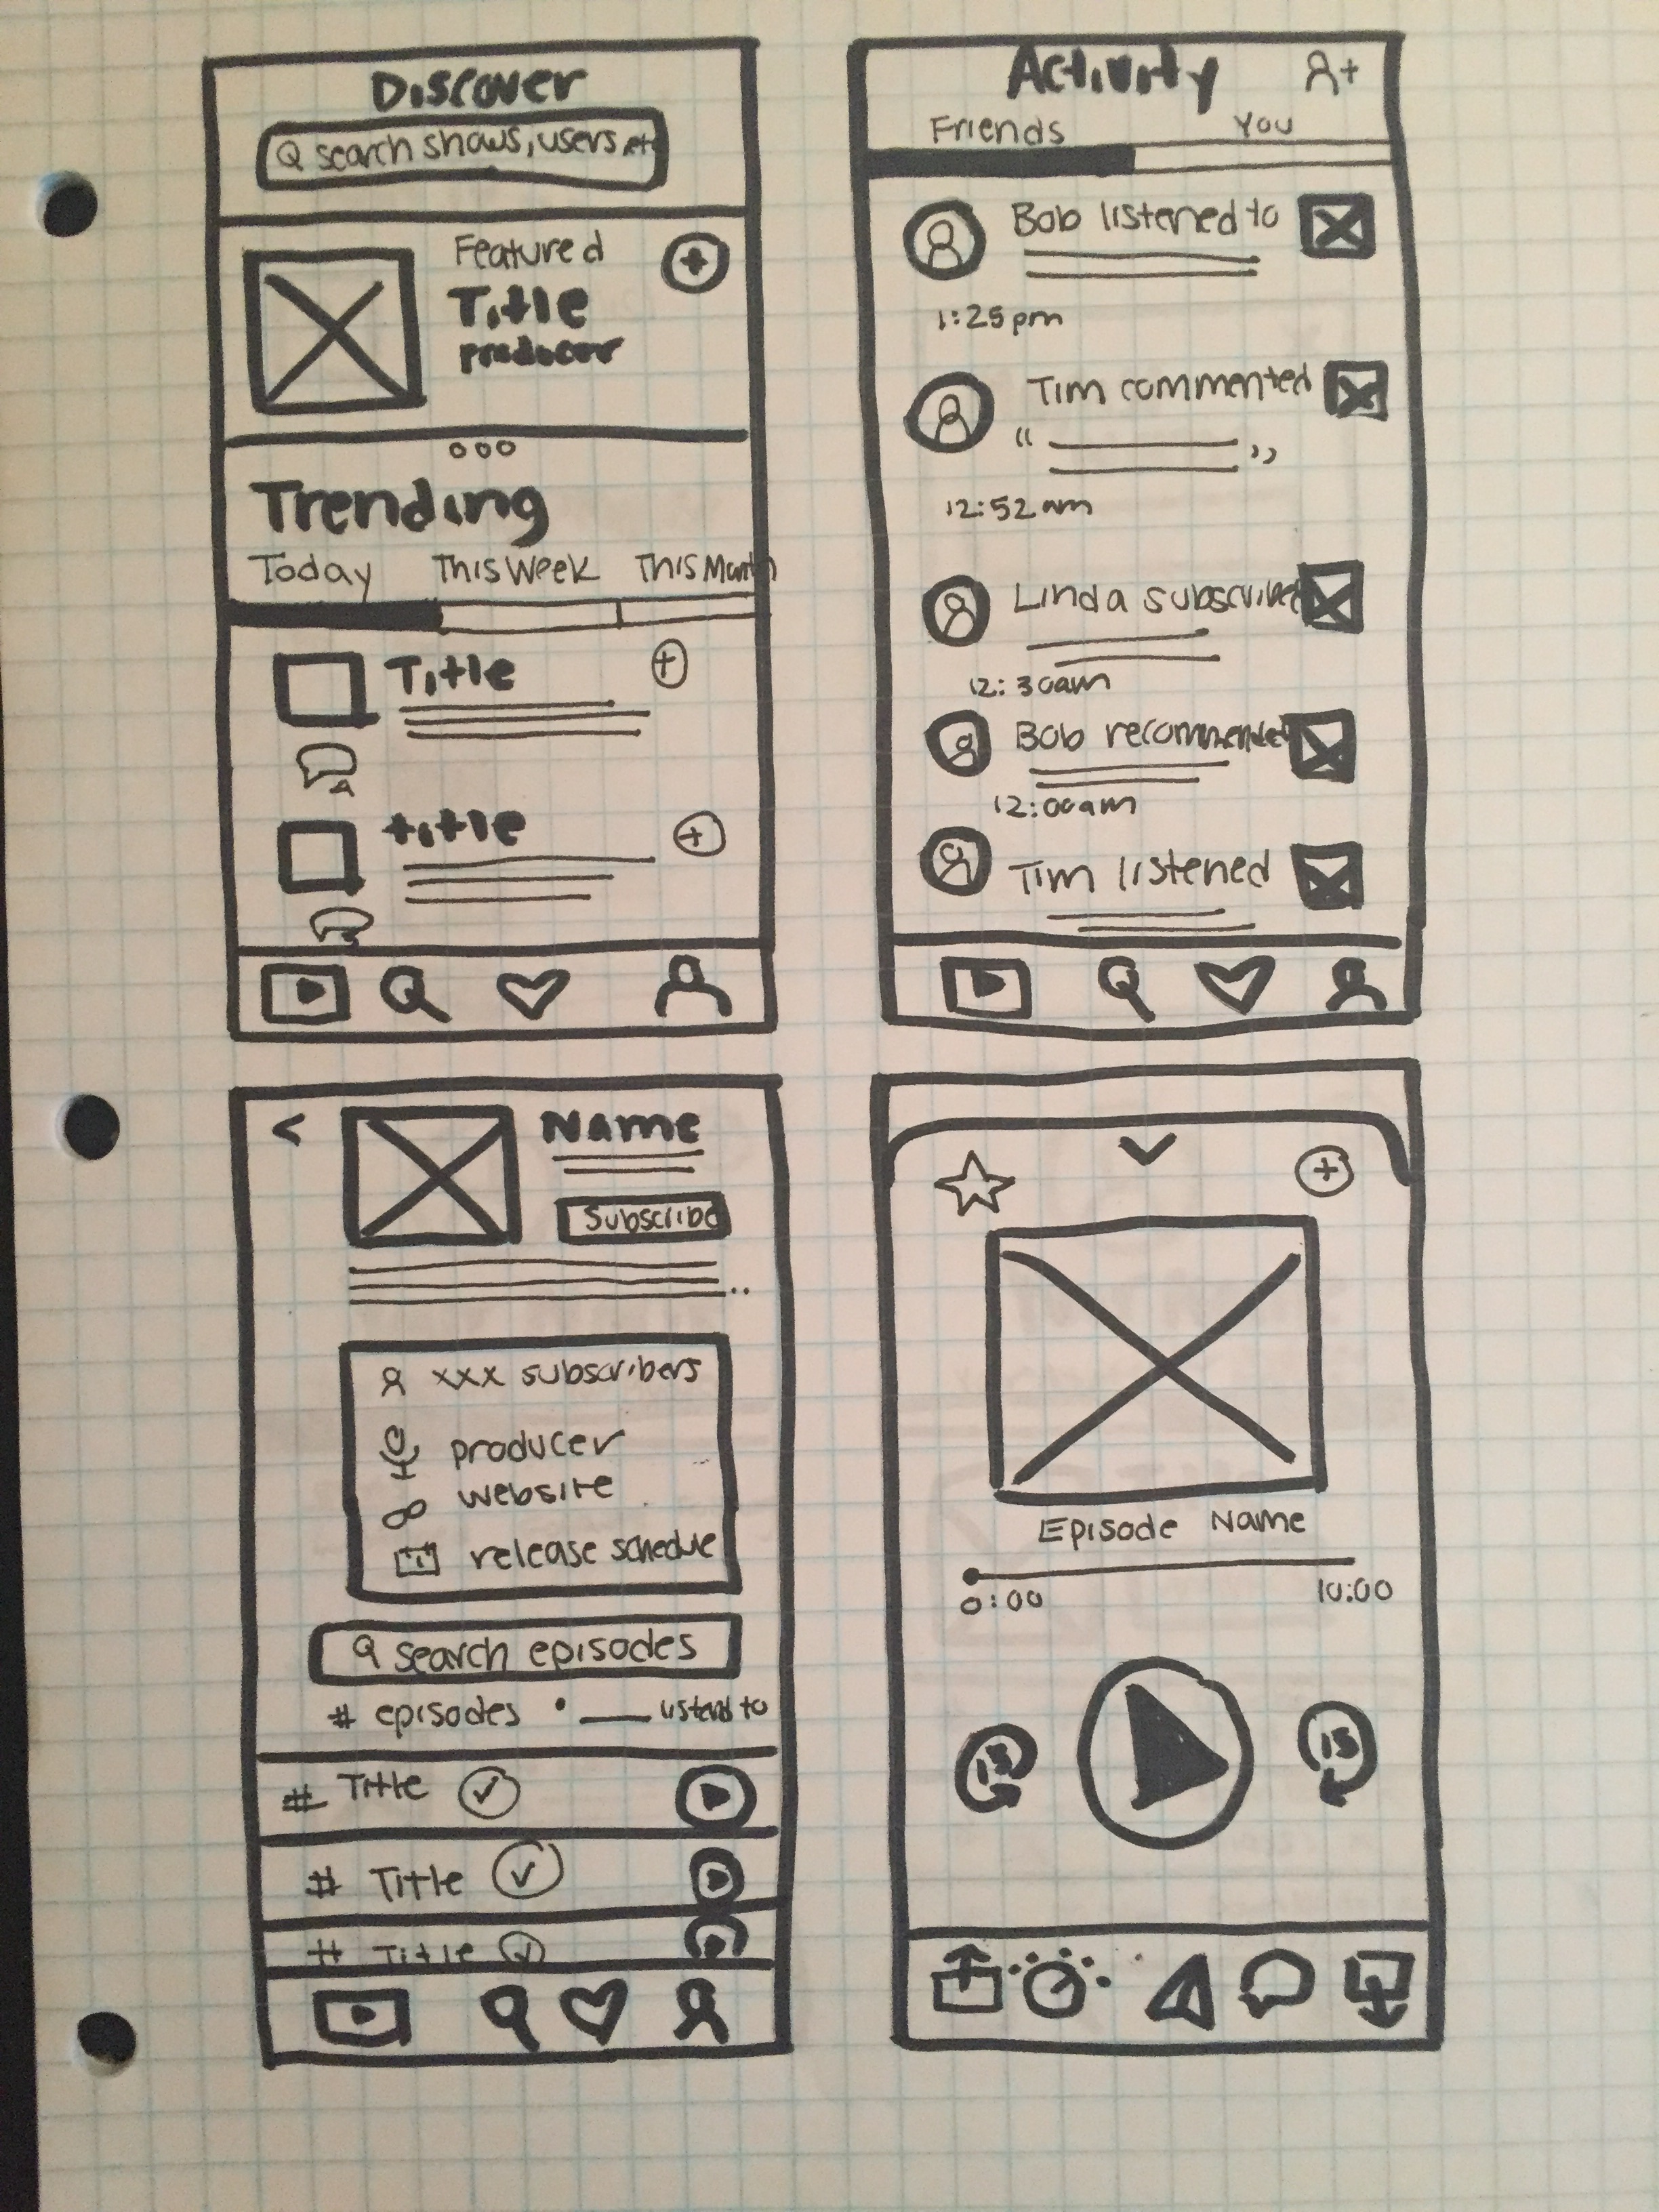 Discover
search shows, users etc
Featured
Title
producer
Trending
Today This Week This Month
Title
title
Activity
Friends You
Bob listened to
1:25 pm
Tim commented
“ ”
12:52 am
Linda subscribed
12:30am
Bob recommended
12:00am
Tim listened
<
Name
Subscribe
..
xxx subscribers
producer
website
release schedule
search episodes
# episodes • ___ listend to
# Title
# Title
# Title
Episode Name
0:00 10:00
15 15